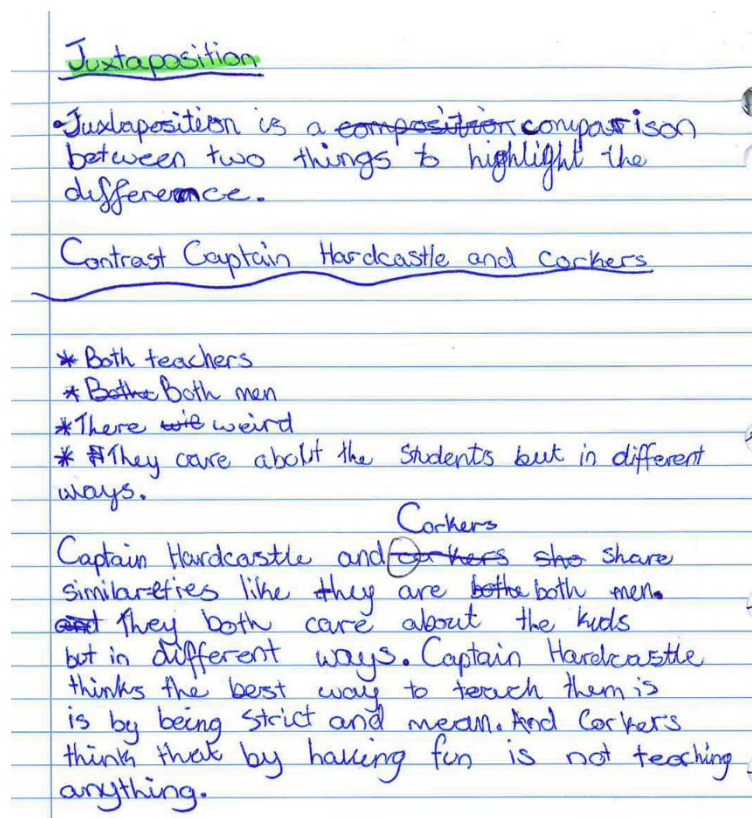 Juxtaposition
•Juxtaposition is a composition comparison
between two things to highlight the
difference.
Contrast Captain Hardcastle and corkers
* Both teachers
* Bothe Both men
* There wie weird
* They care about the students but in different
ways.
Corkers
Captain Hardcastle and corkers sho share
similareties like they are bothe both men.
and They both care about the kids
but in different ways. Captain Hardcastle
thinks the best way to teach them is
is by being strict and mean. And Corkers
think that by having fun is not teaching
anything.